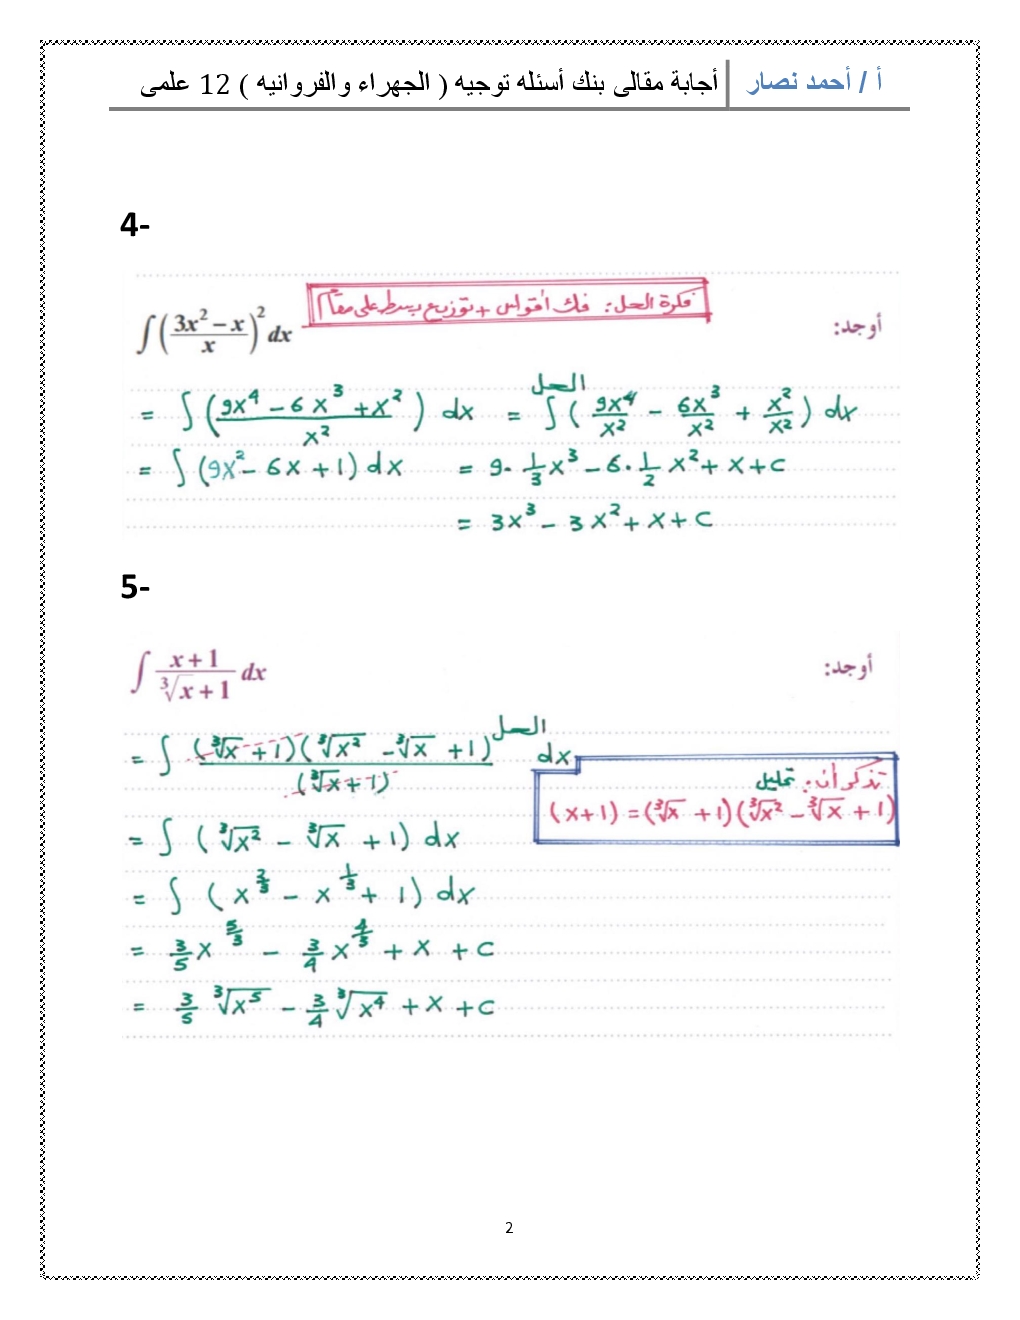 أ / أحمد نصار أجابة مقالى بنك أسئله توجيه ( الجهراء والفروانيه ) 12 علمى
4-
فكرة الحل: فك أقواس + توزيع بسط على مقام
أوجد: ∫ ( (3x² − x) / x )² dx
الحل
= ∫ ( (9x⁴ − 6x³ + x²) / x² ) dx = ∫ ( 9x⁴/x² − 6x³/x² + x²/x² ) dx
= ∫ (9x² − 6x + 1) dx = 9 · 1/3 x³ − 6 · 1/2 x² + x + c
= 3x³ − 3x² + x + c
5-
أوجد: ∫ (x + 1) / (∛x + 1) dx
الحل
= ∫ (∛x + 1)(∛x² − ∛x + 1) / (∛x + 1) dx
تذكر أن: تحليل
(x+1) = (∛x + 1)(∛x² − ∛x + 1)
= ∫ ( ∛x² − ∛x + 1) dx
= ∫ ( x^(2/3) − x^(1/3) + 1) dx
= 3/5 x^(5/3) − 3/4 x^(4/3) + x + c
= 3/5 ∛x⁵ − 3/4 ∛x⁴ + x + c
2